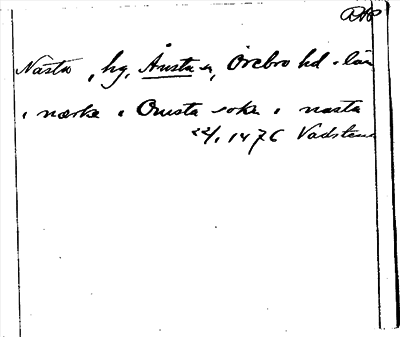 RAP
Nasta, hg, Ånsta sn, Örebro hd o län
i nærke i Onusta sokn i nasta
22/1 1476 Vadstena